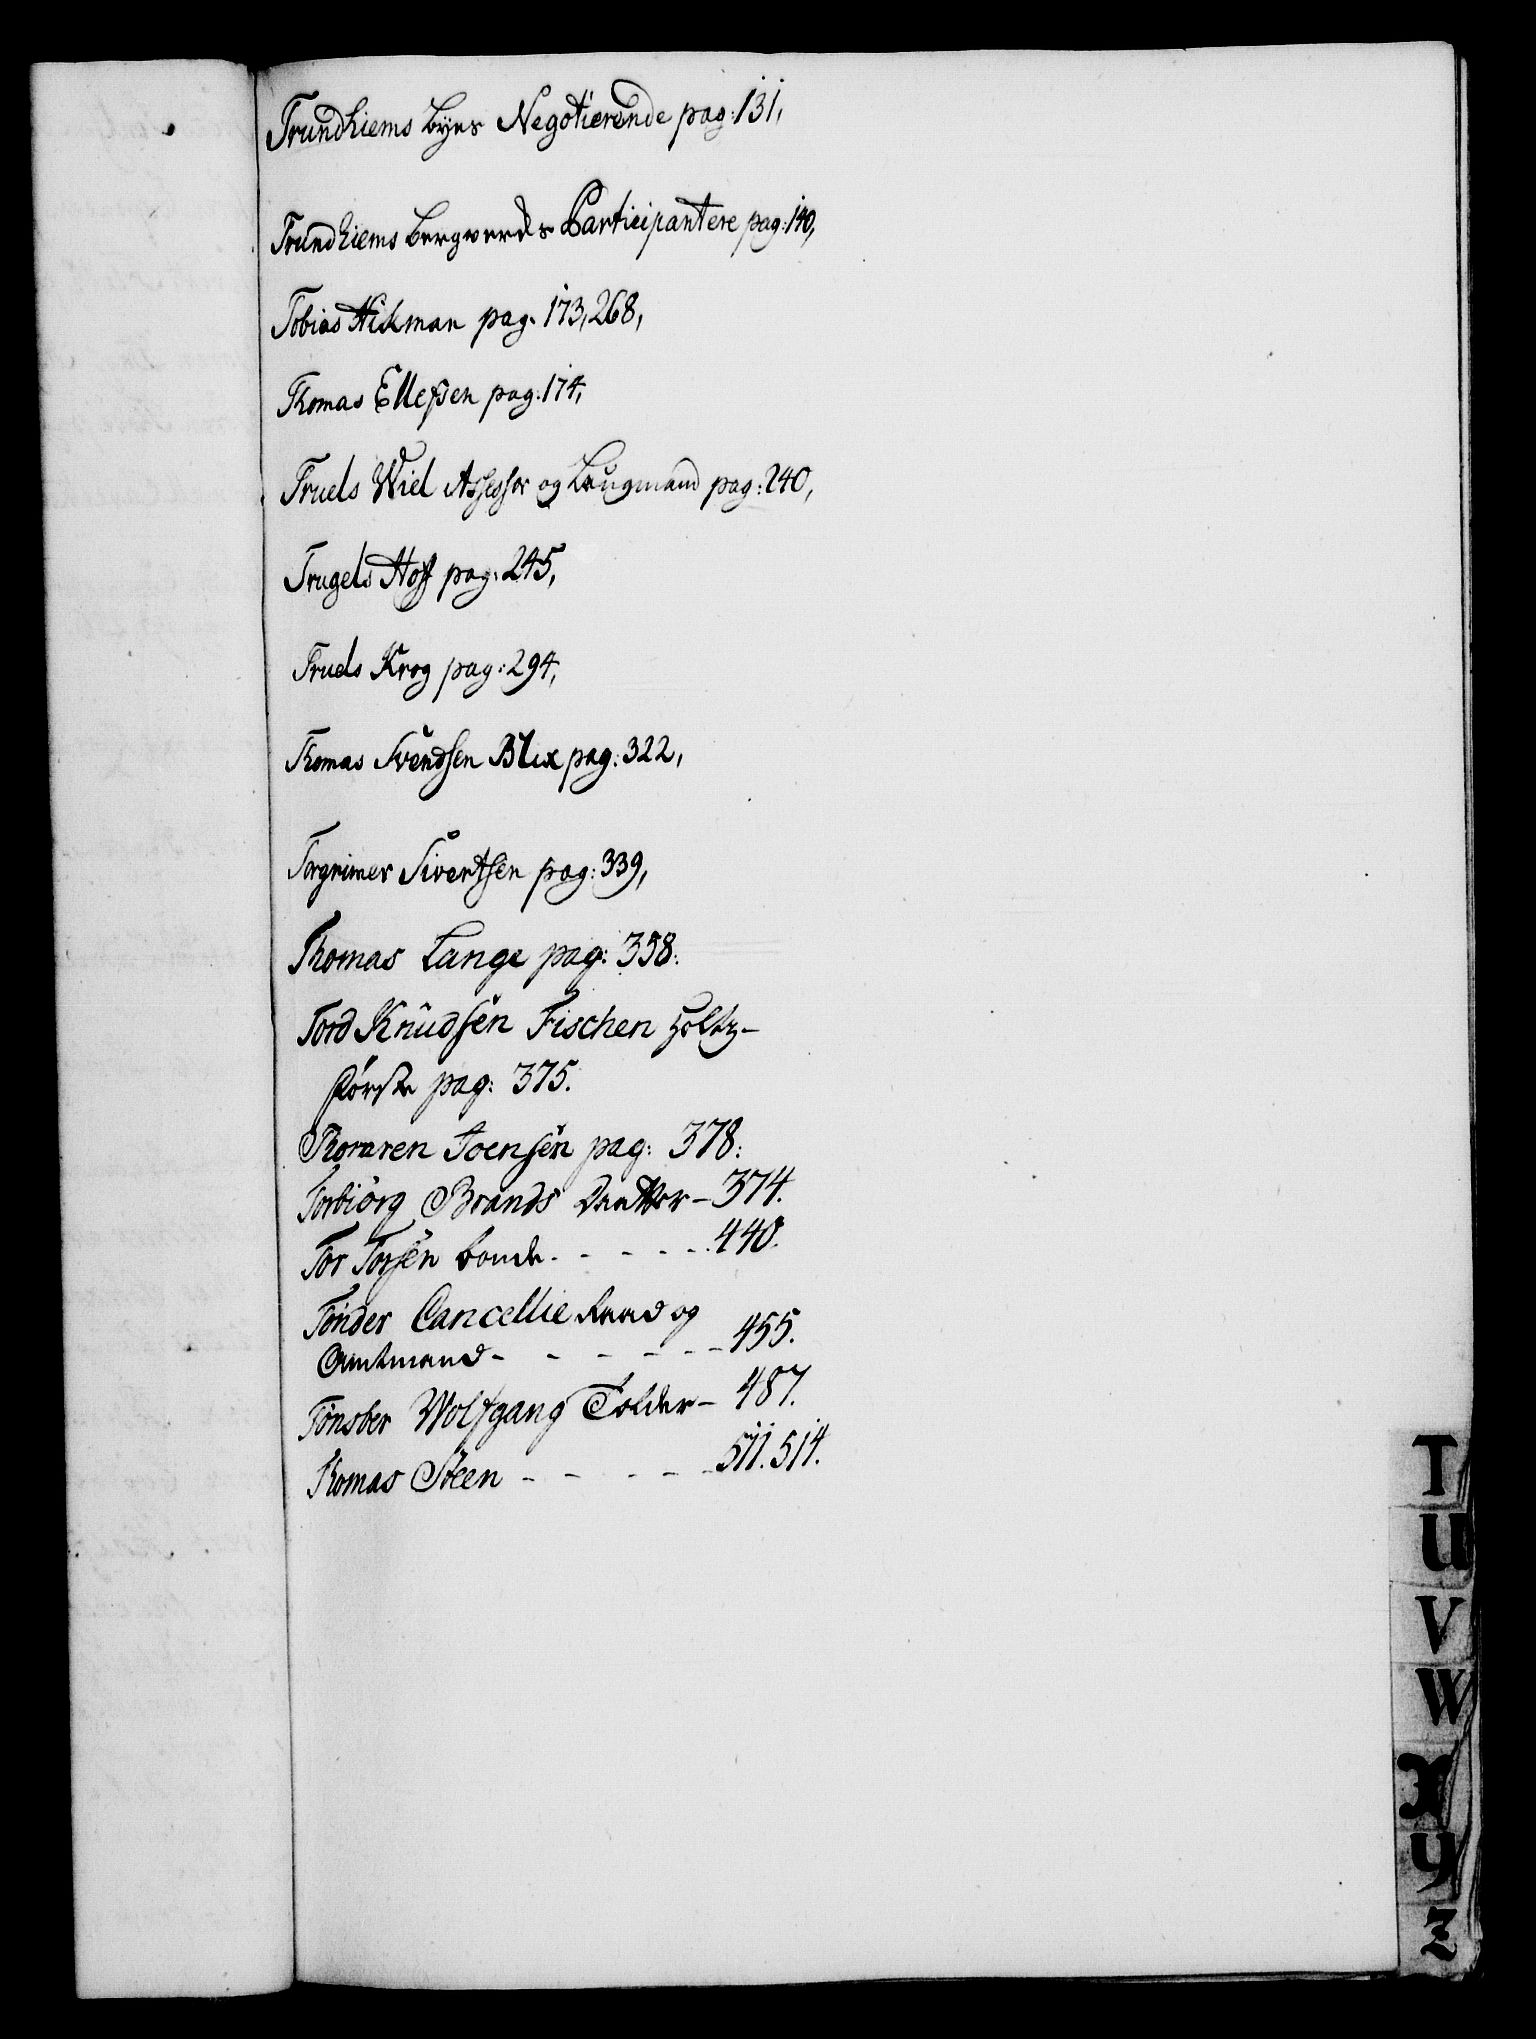 Trundhiems Byes Negotierende pag: 131,
Trundhiems Bergverds Participantere pag: 140,
Tobias Hikman pag. 173, 268,
Thomas Ellefsen pag: 174,
Truels Wiel Assessor og Laugmand pag: 240,
Trugels Hoff pag: 245,
Truels Krog pag: 294,
Thomas Svendsen Blix pag: 322,
Torgrimer Sivertsen pag: 339,
Thomas Lange pag: 358:
Tord Knudsen Fischen Holtz-
førster pag: 375.
Thoraren Joensen pag: 378:
Torbiörg Brands Daatter - 374.
Tor Torsen bonde - - - - - 440.
Tønder Cancellie Raad og
Amtmand - - - - - - 455.
Tønsber Wolfgang Tolder - 487.
Thomas Steen - - - - - 511. 514.
T
U
V
W
X
Y
Z